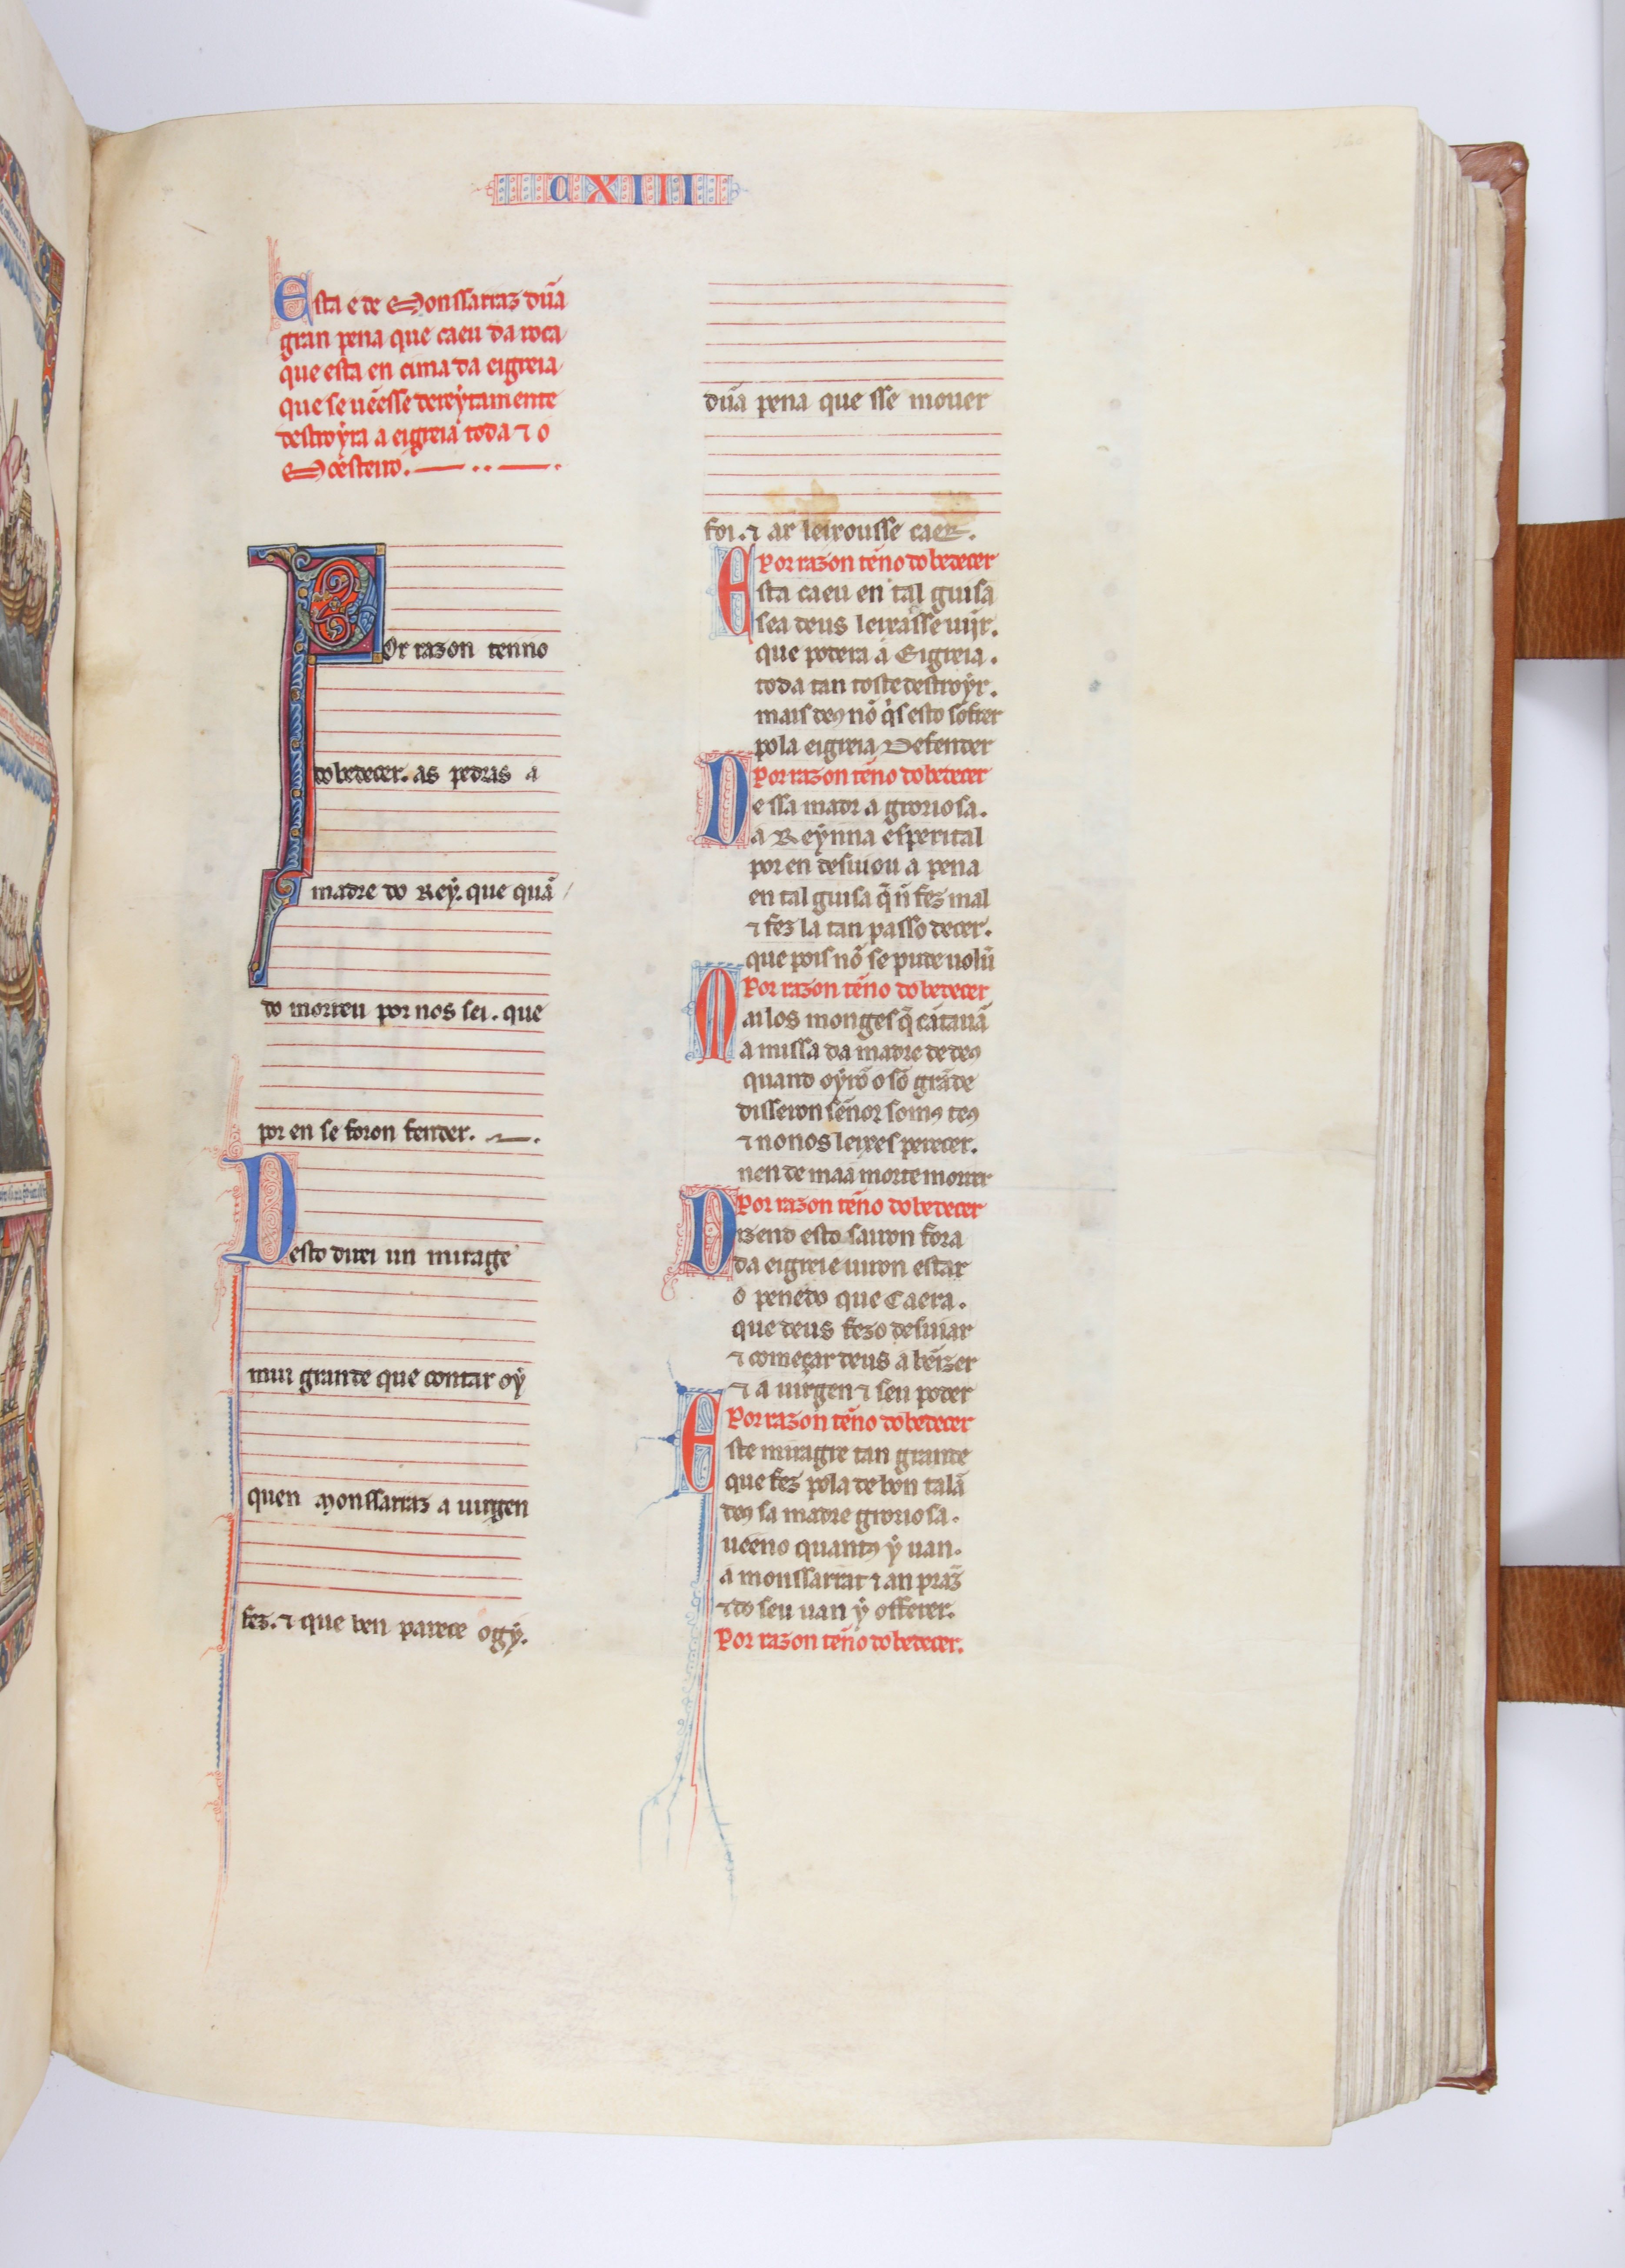 CXIII
Esta e de Monssarraz dũa
gran pena que caeu da roca
que esta en cima da eigreia
que se uẽesse dereytamente
destroyra a eigreia toda ⁊ o
Mõesteiro.
POr razon tenno
dobedecer. as pedras a
madre do Rey. que quã
do morreu por nos sei. que
por en se foron fender.
Desto direi un miragre
mui grande que contar oý
quen Monssarraz a uirgen
fez. ⁊ que ben parece ogý.
dũa pena que sse mouer
foi. ⁊ ar leixousse caer.
Por razon tẽno dobedecer
Esta caeu en tal guisa
sea deus leixasse uĩjr.
que podera a Eigreia.
toda tan toste destroýr.
mais deꝯ nõ q̇s esto sofrer
pola eigreia Defender
Por razon tẽno dobedecer
De ssa madr a groriosa.
a Reýnna esperital
por en desuiou a pena
en tal guisa q̃ ñ fez mal
⁊ fez la tan passo decer.
que pois nõ se pude uoluer
Por razon tẽno dobedecer
Mai los monges q̃ cãtauã
a missa da madre de deꝯ
quando oýrõ o sõ grãde
disseron sẽnor somꝯ teꝯ
⁊ nonos leixes perecer.
nen de maa morte morrer
Por razon tẽno dobedecer
Dizend esto sairon fora
da eigrei e uiron estar
o penedo que Caera.
que deus fezo desuiar
⁊ começar deus a bẽizer
⁊ a uirgen ⁊ seu poder
Por razon tẽno dobedecer
Este miragre tan grande
que fez pola de bon talã
deꝯ sa madre groriosa.
ueeno quantꝯ ý uan.
a monssarrat ⁊ an praz̃
⁊ do seu uan ý offerer.
Por razon tẽno dobedecer.